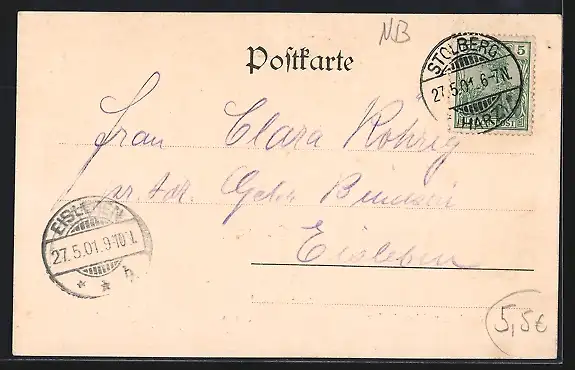 NB
Postkarte
5
STOLBERG
27.5.01.6-7N.
HARZ
Frau Clara Rohrig
Gebr.
Eisleben
EISLEBEN
27.5.01.9-10N.
* * b.
5,5€